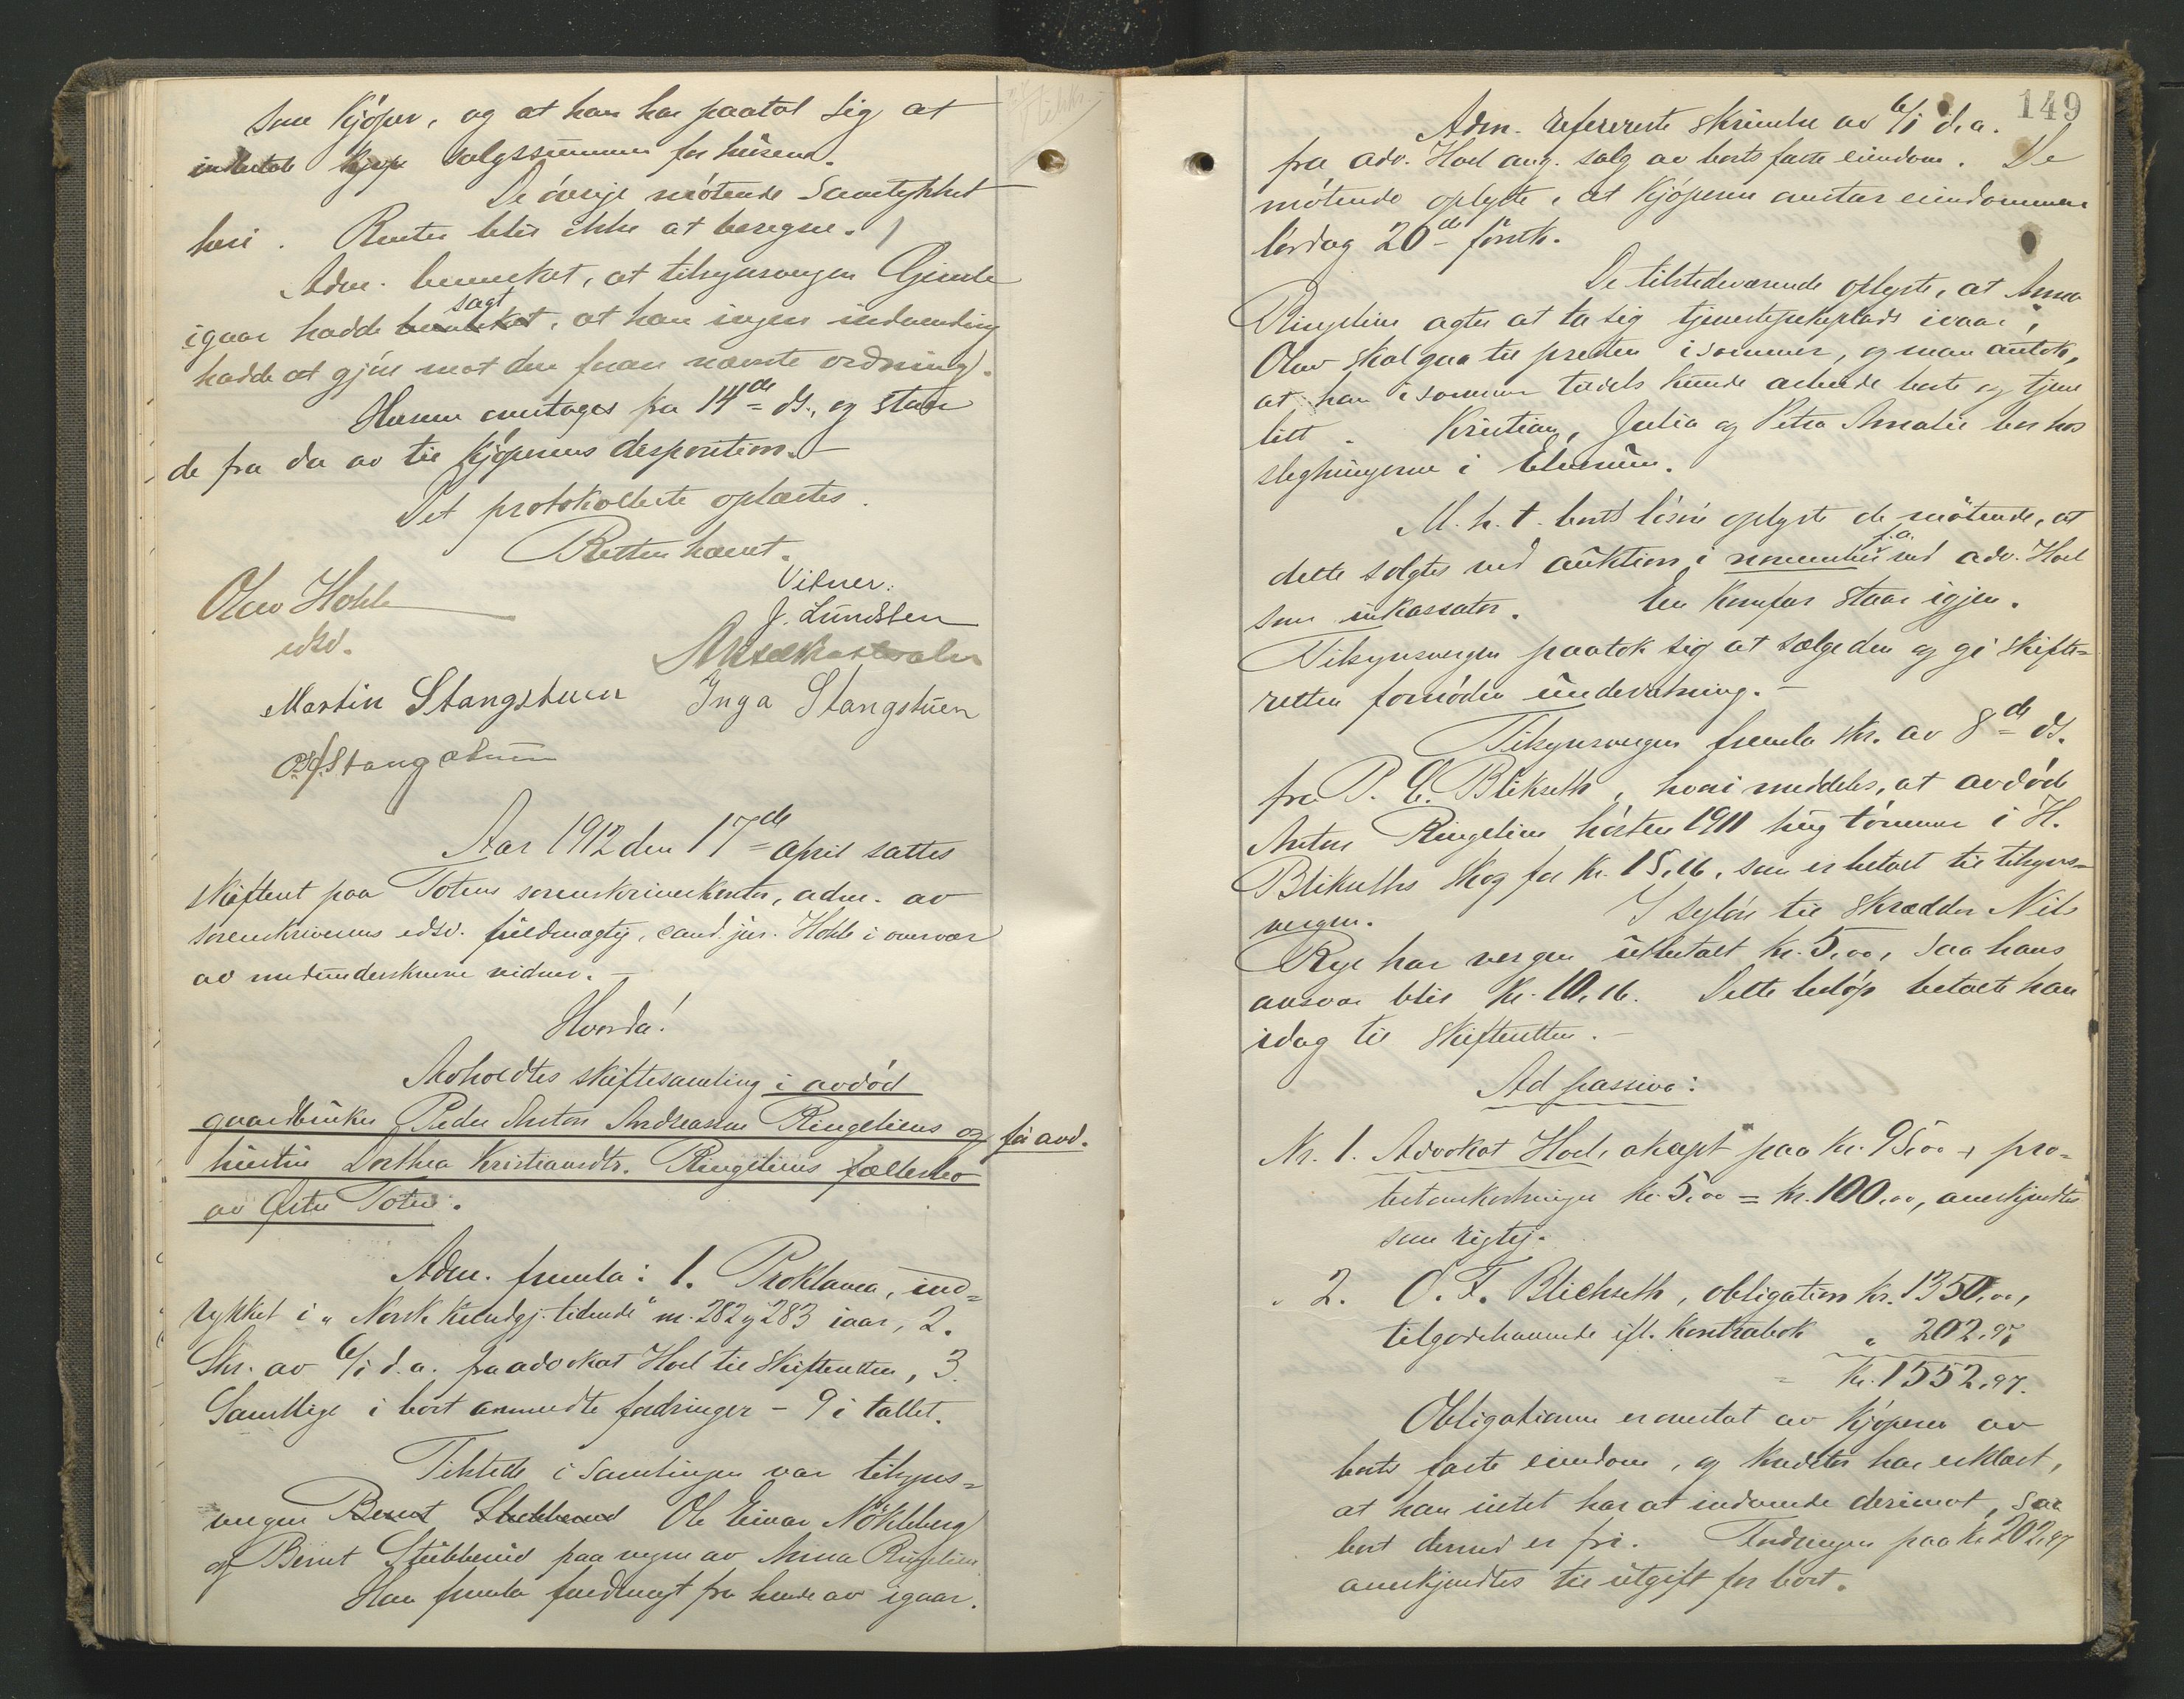 som kjøper, og at han har paatat sig at
indbetale kjøp salgssummen for husene.
De øvrige møtende samtykket
heri. Renter blir ikke at beregne.
Adm. bemerket, at tilsynsvergen Gjerde
igaar hadde bemerket sagt, at han ingen indvending
hadde at gjøre mot den foran nævnte ordning.
Husene overtages fra 14de ds., og staar
de fra da av til kjøperens desposition.
Det protokollerte oplæstes.
Retten hævet.
Olav Hohle
edsv.
Vitner:
J. Lundsten
Martin Stangstuen
Inga Stangstuen
Stangstuen
Aar 1912 den 17de april sattes
skifteret paa Totens sorenskriverkontor, adm. av
sorenskriverens edsv. fuldmægtig, cand. jur. Hohle i overvær
av medunderskrevne vidner.
Hvorda!
Avholdtes skiftesamling i avdød
gaardbruker Peder Anton Andreassen Ringeliens og før avd.
hustru Dorthea Kristiansdtr. Ringeliens fællesbo
av Østre Toten.
Adm. fremla: 1. Proklama, ind-
rykket i "Norsk kundgj. tidende" nr. 282 og 283 iaar, 2.
Skr. av 6/1 d.a. fra advokat Hoel til skifteretten, 3.
Samtlige i boet anmeldte fordringer - 9 i tallet.
Tilstede i samlingen var tilsyns-
vergen Bernt Stubberud Ole Einar Nøkleberg
og Bernt Stubberud paa vegne av Anna Ringelien.
Han fremla fuldmagt fra hende av igaar.
149
Adm. refererte skrivelse av 6/1 d.a.
fra adv. Hoel ang. salg av boets faste eiendom. De
møtende oplyste, at kjøperen overtar eiendommen
lørdag 20de førstk.
De tilstedeværende oplyste, at Anna
Ringelien agter at ta sig tjenestepikeplads ivaar,
Olav skal gaa til presten i sommer, og man antok,
at han i sommer tildels kunde arbeide borte og tjene
litt. Kristian, Julia og Petra Amalie bor hos
slegtningerne i Elverum.
M.h.t. boets løsøre oplyste de møtende, at
dette solgtes ved auktion i november f.a. ved adv. Hoel
som inkassator. En komfur staar igjen.
Tilsynsvergen paatok sig at sælge den og gi skifte-
retten fornøden underretning.
Tilsynsvergen fremla skr. av 8de ds.
fra P. E. Blikseth, hvori meddeles, at avdøde
Anton Ringelien høsten 1911 hug tømmer i H.
Blikseths skog for kr. 15,16, som er betalt til tilsyns-
vergen. I syløn til skrædder Nils
Rye har vergen utbetalt kr. 5,00, saa hans
ansvar blir kr. 10,16. Dette beløp betalte han
idag til skifteretten.
Ad passiva:
Nr. 1. Advokat Hoel, akcept paa kr. 95,00 + pro-
testomkostninger kr. 5,00 = kr. 100,00, anerkjendtes
som rigtig.
" 2. O. F. Blichseth, obligation kr. 1350,00,
tilgodehavende ifl. kontrabok " 202,97
= kr. 1552,97.
Obligationen er overtat av kjøperen av
boets faste eiendom, og kreditor har erklært,
at han intet har at indvende derimot, saa
boet dermed er fri. Fordringen paa kr. 202,97
anerkjendtes til utgift for boet.